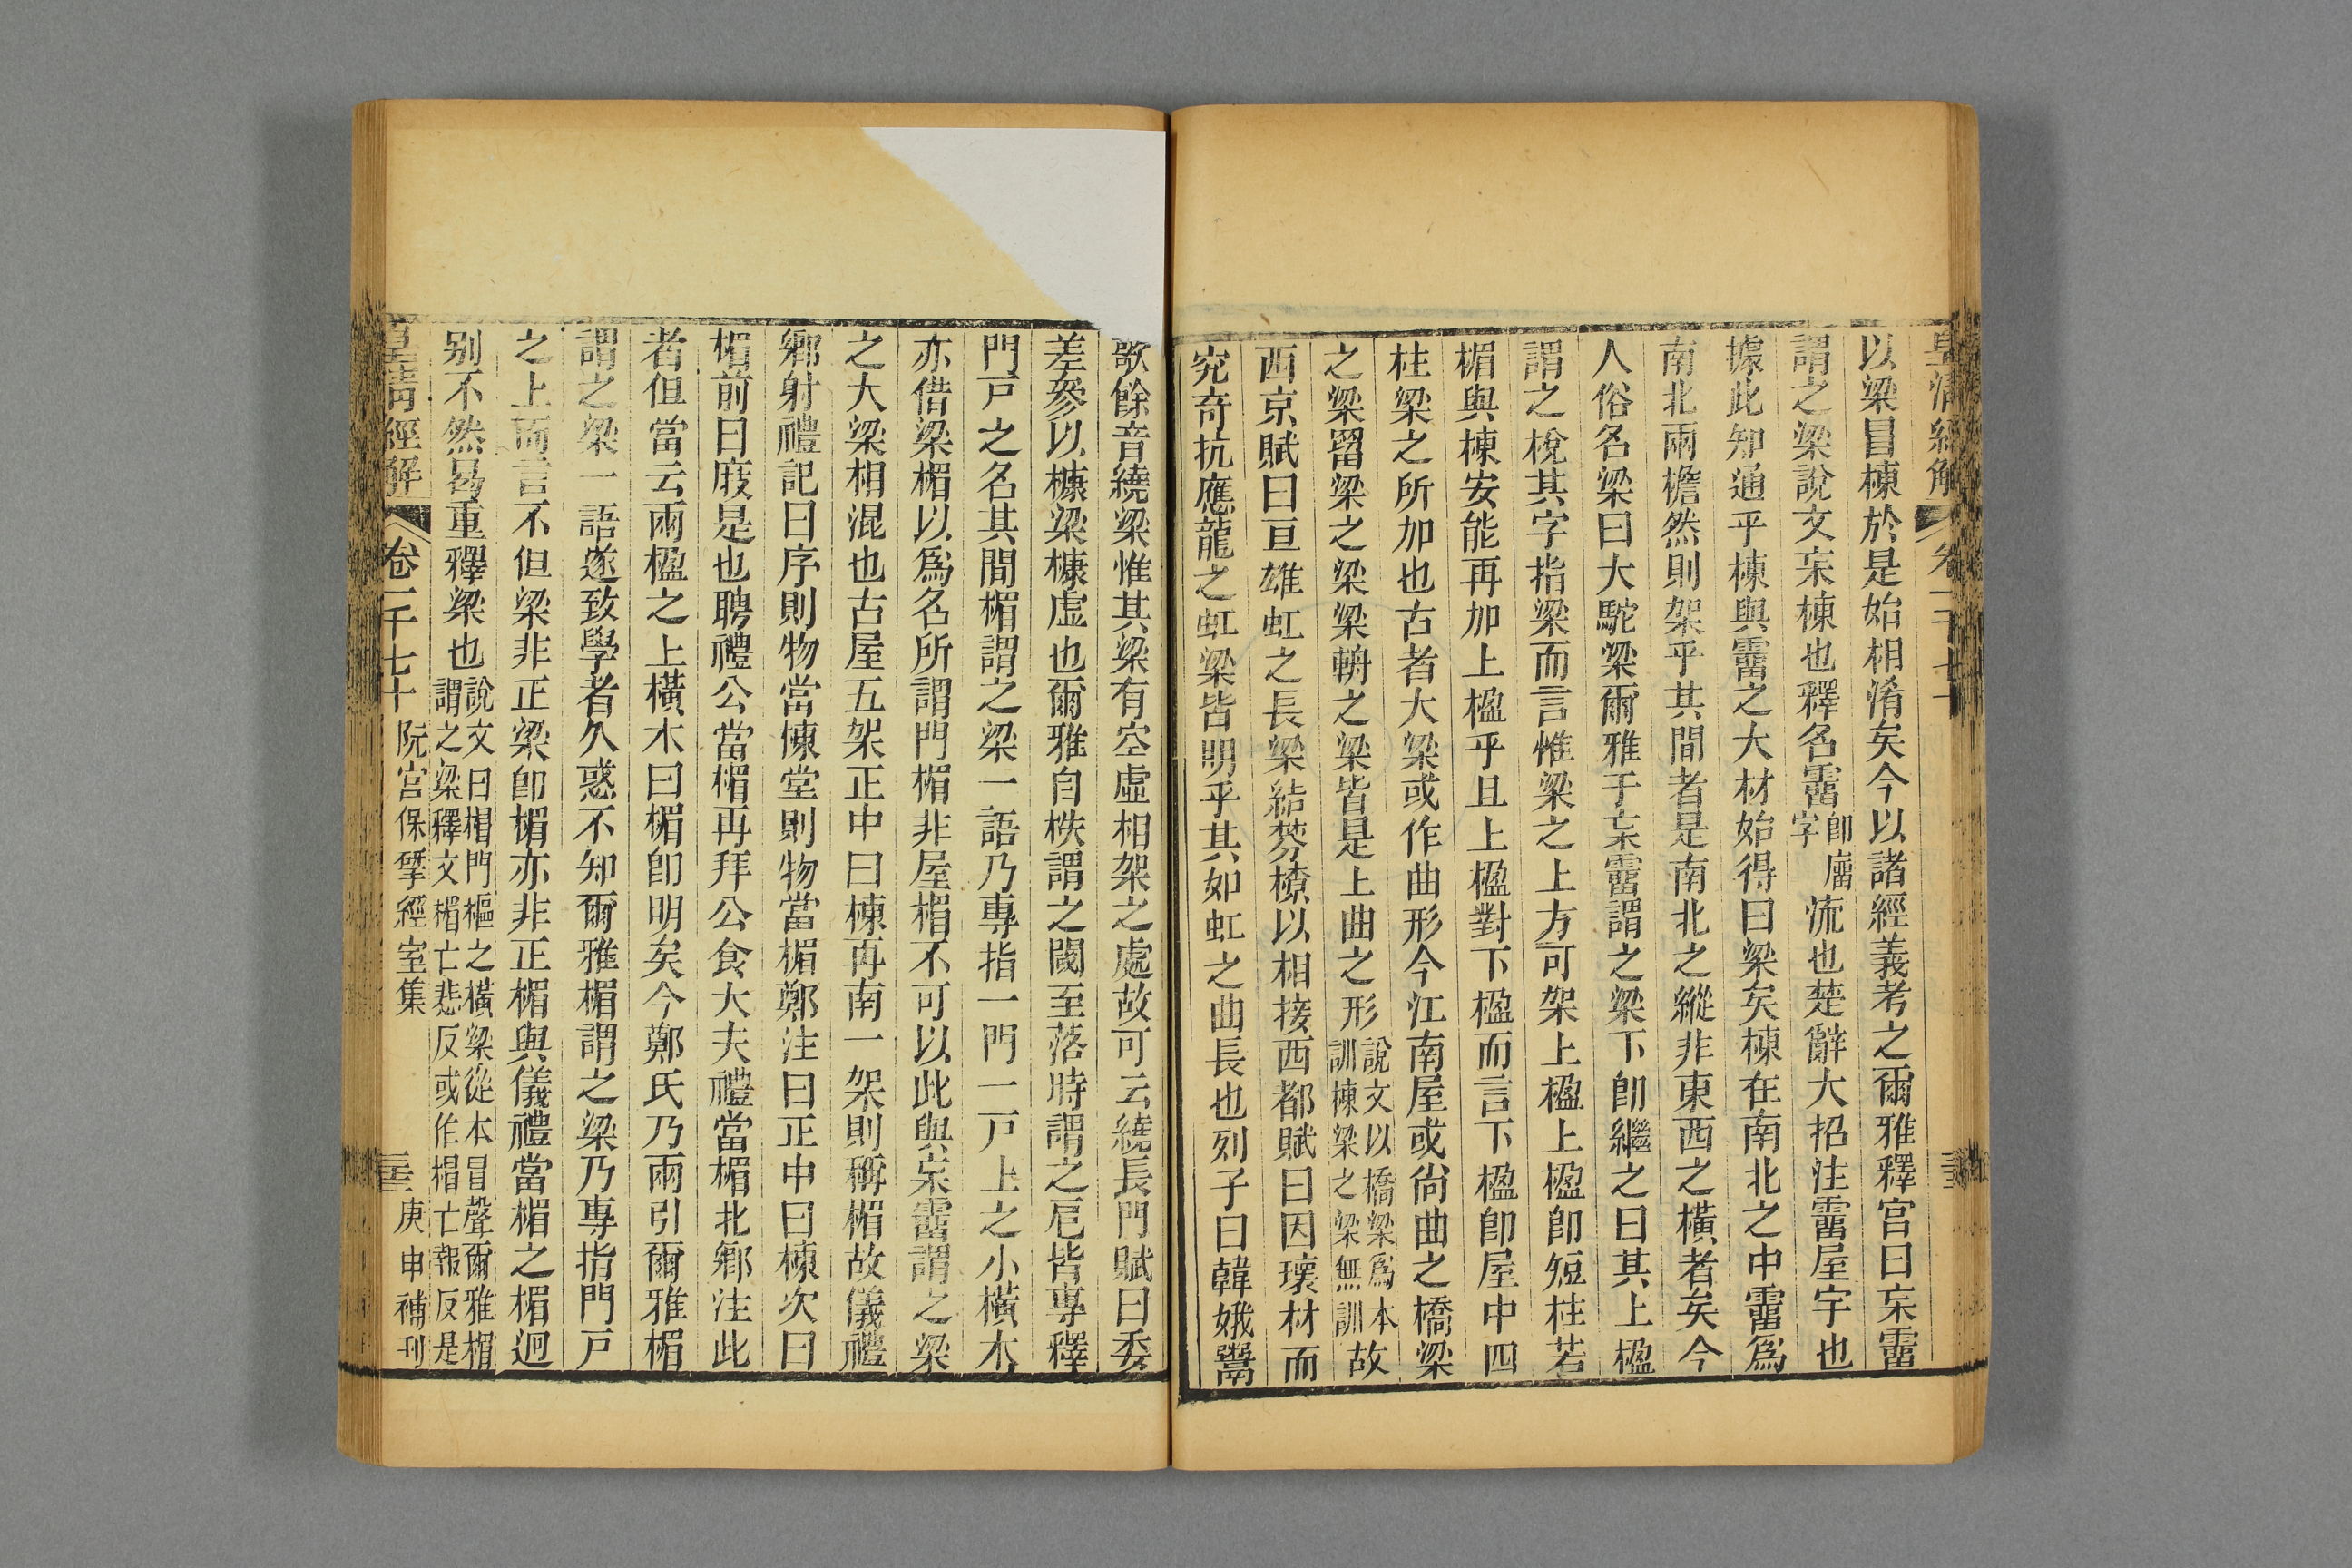 皇清經解 卷一千七十
以梁冒棟於是始相淆矣今以諸經義考之爾雅釋宮曰杗霤
謂之梁說文杗棟也釋名霤卽廇字流也楚辭大招注霤屋宇也
據此知通乎棟與霤之大材始得曰梁矣棟在南北之中霤爲
南北兩檐然則架乎其間者是南北之縱非東西之橫者矣今
人俗名梁曰大駝梁爾雅于杗霤謂之梁下卽繼之曰其上楹
謂之梲其字指梁而言惟梁之上方可架上楹上楹卽短柱若
楣與棟安能再加上楹乎且上楹對下楹而言下楹卽屋中四
柱梁之所加也古者大梁或作曲形今江南屋或尙曲之橋梁
之梁罶梁之梁梁輈之梁皆是上曲之形說文以橋梁爲本訓棟梁之梁無訓故
西京賦曰亘雄虹之長梁結棼橑以相接西都賦曰因瓌材而
究奇抗應龍之虹梁皆明乎其如虹之曲長也列子曰韓娥鬻
歌餘音繞梁惟其梁有空虛相架之處故可云繞長門賦曰委
差參以槺梁槺虛也爾雅自柣謂之閾至落時謂之戹皆專釋
門戸之名其間楣謂之梁一語乃專指一門一戸上之小橫木
亦借梁楣以爲名所謂門楣非屋楣不可以此與杗霤謂之梁
之大梁相混也古屋五架正中曰棟再南一架則稱楣故儀禮
鄉射禮記曰序則物當棟堂則物當楣鄭注曰正中曰棟次曰
楣前曰庪是也聘禮公當楣再拜公食大夫禮當楣北鄉注此
者但當云兩楹之上橫木曰楣卽明矣今鄭氏乃兩引爾雅楣
謂之梁一語遂致學者久惑不知爾雅楣謂之梁乃專指門戸
之上而言不但梁非正梁卽楣亦非正楣與儀禮當楣之楣迥
别不然曷重釋梁也說文曰楣門樞之橫梁從木冒聲爾雅楣謂之梁釋文楣亡悲反或作楣亡報反是
皇清經解 卷一千七十 阮宮保揅經室集 庚申補刊